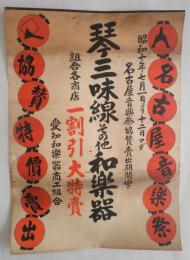 名古屋音楽祭
昭和十年七月一日ヨリ十二日マデ
名古屋音楽祭協賛売出期間中
琴三味線その他和楽器
一割引大特売
組合各商店
愛知和楽器商工組合
協賛特價売出